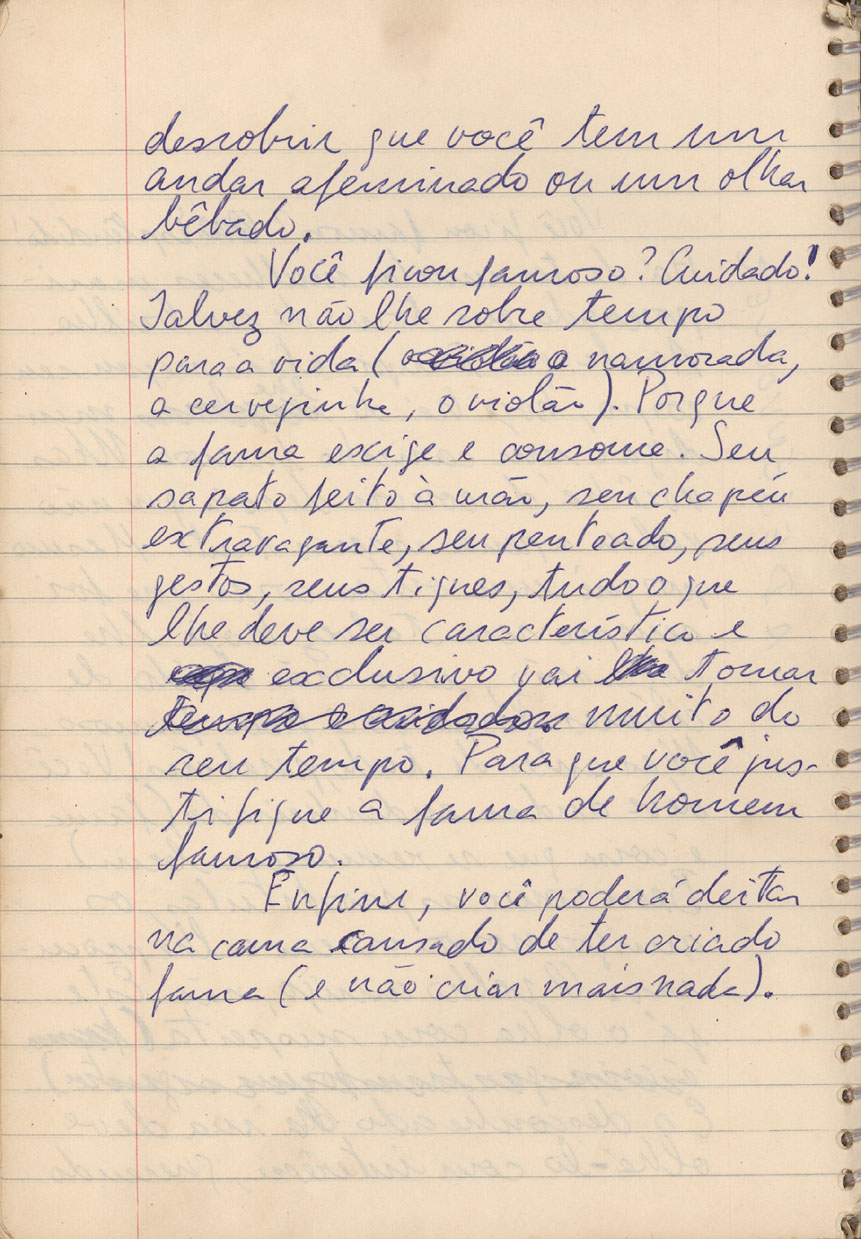 descobrir que você tem um
andar afeminado ou um olhar
bêbado.
Você ficou famoso? Cuidado!
Talvez não lhe sobre tempo
para a vida (a namorada,
a cervejinha, o violão). Porque
a fama exige e consome. Seu
sapato feito à mão, seu chapéu
extravagante, seu penteado, seus
gestos, seus tiques, tudo o que
lhe deve ser característico e
exclusivo vai tomar
muito do
seu tempo. Para que você jus-
tifique a fama de homem
famoso.
Enfim, você poderá deitar
na cama cansado de ter criado
fama (e não criar mais nada).